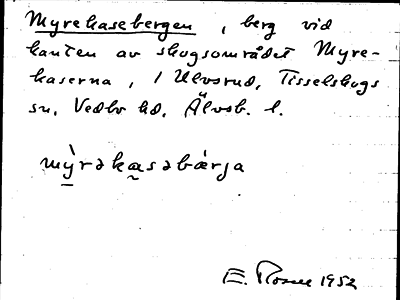 Myrekasebergen, berg vid
kanten av skogsområdet Myre-
kaserna, i Ulvsrud, Tisselskogs
sn, Vedbo hd, Älvsb. l.
mỳrəkasəbárja
E. Rosell 1952